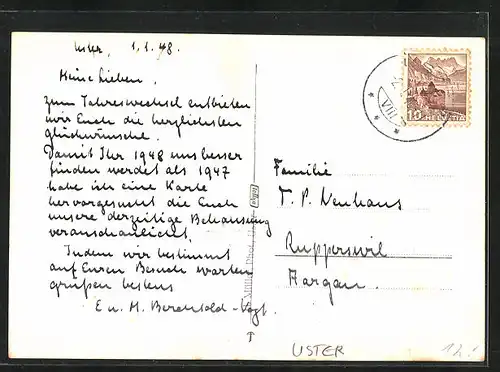 Uster, 1.1.48.
Meine Lieben,
Zum Jahreswechsel entbieten
wir Euch die herzlichsten
Glückwünsche.
Damit Ihr 1948 uns besser
finden werdet als 1947
habe ich eine Karte
hervorgesucht die Euch
unsere derzeitige Behausung
veranschaulicht.
Indem wir bestimmt
auf Euren Besuch warten
grüßen bestens
E u. H. Berchtold-Vogt
10 HELVETIA
VIII
Familie
T. P. Neuhaus
Rupperswil
Aargau.
USTER
12.